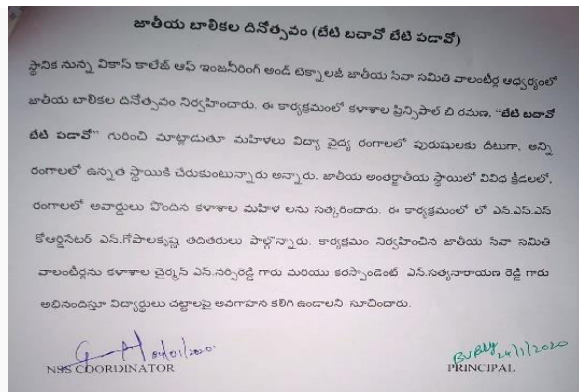 జాతీయ బాలికల దినోత్సవం (బేటి బచావో బేటి పడావో)
స్థానిక నున్న వికాస్ కాలేజ్ ఆఫ్ ఇంజనీరింగ్ అండ్ టెక్నాలజీ జాతీయ సేవా సమితి వాలంటీర్ల ఆధ్వర్యంలో
జాతీయ బాలికల దినోత్సవం నిర్వహించారు. ఈ కార్యక్రమంలో కళాశాల ప్రిన్సిపాల్ చి రమణ, "బేటి బచావో
బేటి పడావో" గురించి మాట్లాడుతూ మహిళలు విద్యా వైద్య రంగాలలో పురుషులకు దీటుగా, అన్ని
రంగాలలో ఉన్నత స్థాయికి చేరుకుంటున్నారు అన్నారు. జాతీయ అంతర్జాతీయ స్థాయిలో వివిధ క్రీడలలో,
రంగాలలో అవార్డులు పొందిన కళాశాల మహిళ లను సత్కరించారు. ఈ కార్యక్రమంలో లో ఎన్.ఎస్.ఎస్
కోఆర్డినేటర్ ఎస్.గోపాలకృష్ణ తదితరులు పాల్గొన్నారు. కార్యక్రమం నిర్వహించిన జాతీయ సేవా సమితి
వాలంటీర్లను కళాశాల చైర్మన్ ఎన్.నర్సిరెడ్డి గారు మరియు కరస్పాండెంట్ ఎన్.సత్యనారాయణ రెడ్డి గారు
అభినందిస్తూ విద్యార్థులు చట్టాలపై అవగాహన కలిగి ఉండాలని సూచించారు.
24/1/2020
NSS COORDINATOR PRINCIPAL